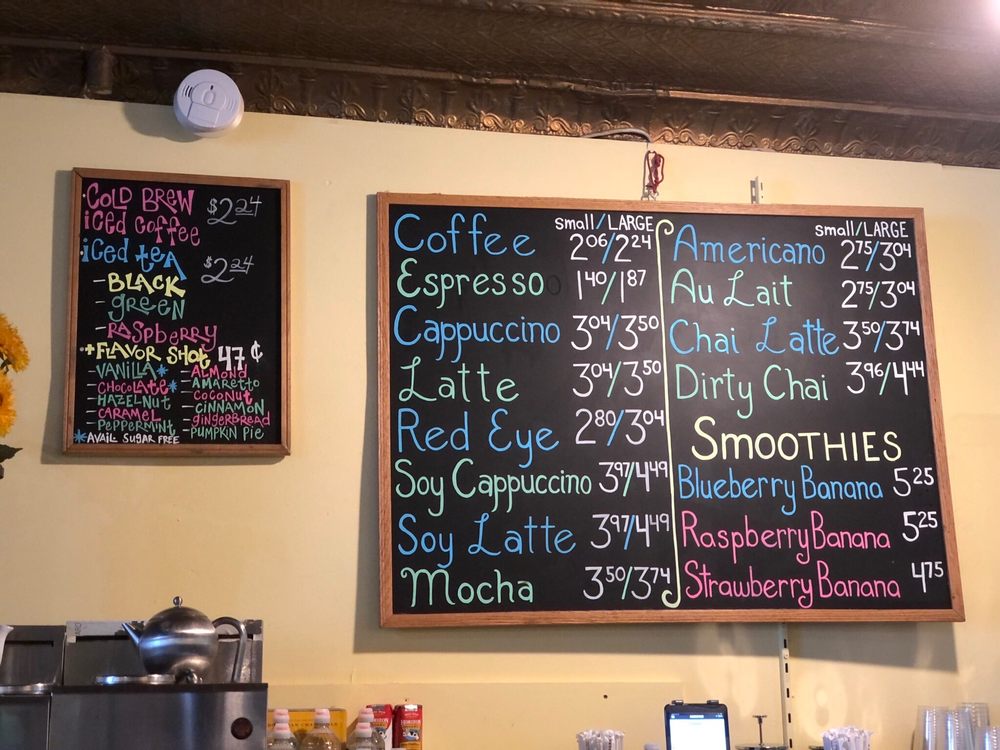 COLD BREW
iced coffee $2.24
iced teA $2.24
- BLACK
- green
- RASpberry
+ FLAVOR SHOt 47¢
- VANILLA*
- CHOCOLATE*
- HAZELNUT
- CARAMEL
- PEPPERMINT
- ALMOND
- AMARETTO
- COCONUT
- CINNAMON
- GINGERBREAD
- PUMPKIN PIE
*AVAIL SUGAR FREE
small/LARGE
Coffee 2.06/2.24
Espresso 1.40/1.87
Cappuccino 3.04/3.50
Latte 3.04/3.50
Red Eye 2.80/3.04
Soy Cappuccino 3.97/4.49
Soy Latte 3.97/4.49
Mocha 3.50/3.74
small/LARGE
Americano 2.75/3.04
Au Lait 2.75/3.04
Chai Latte 3.50/3.74
Dirty Chai 3.96/4.44
SMOOTHIES
Blueberry Banana 5.25
Raspberry Banana 5.25
Strawberry Banana 4.75